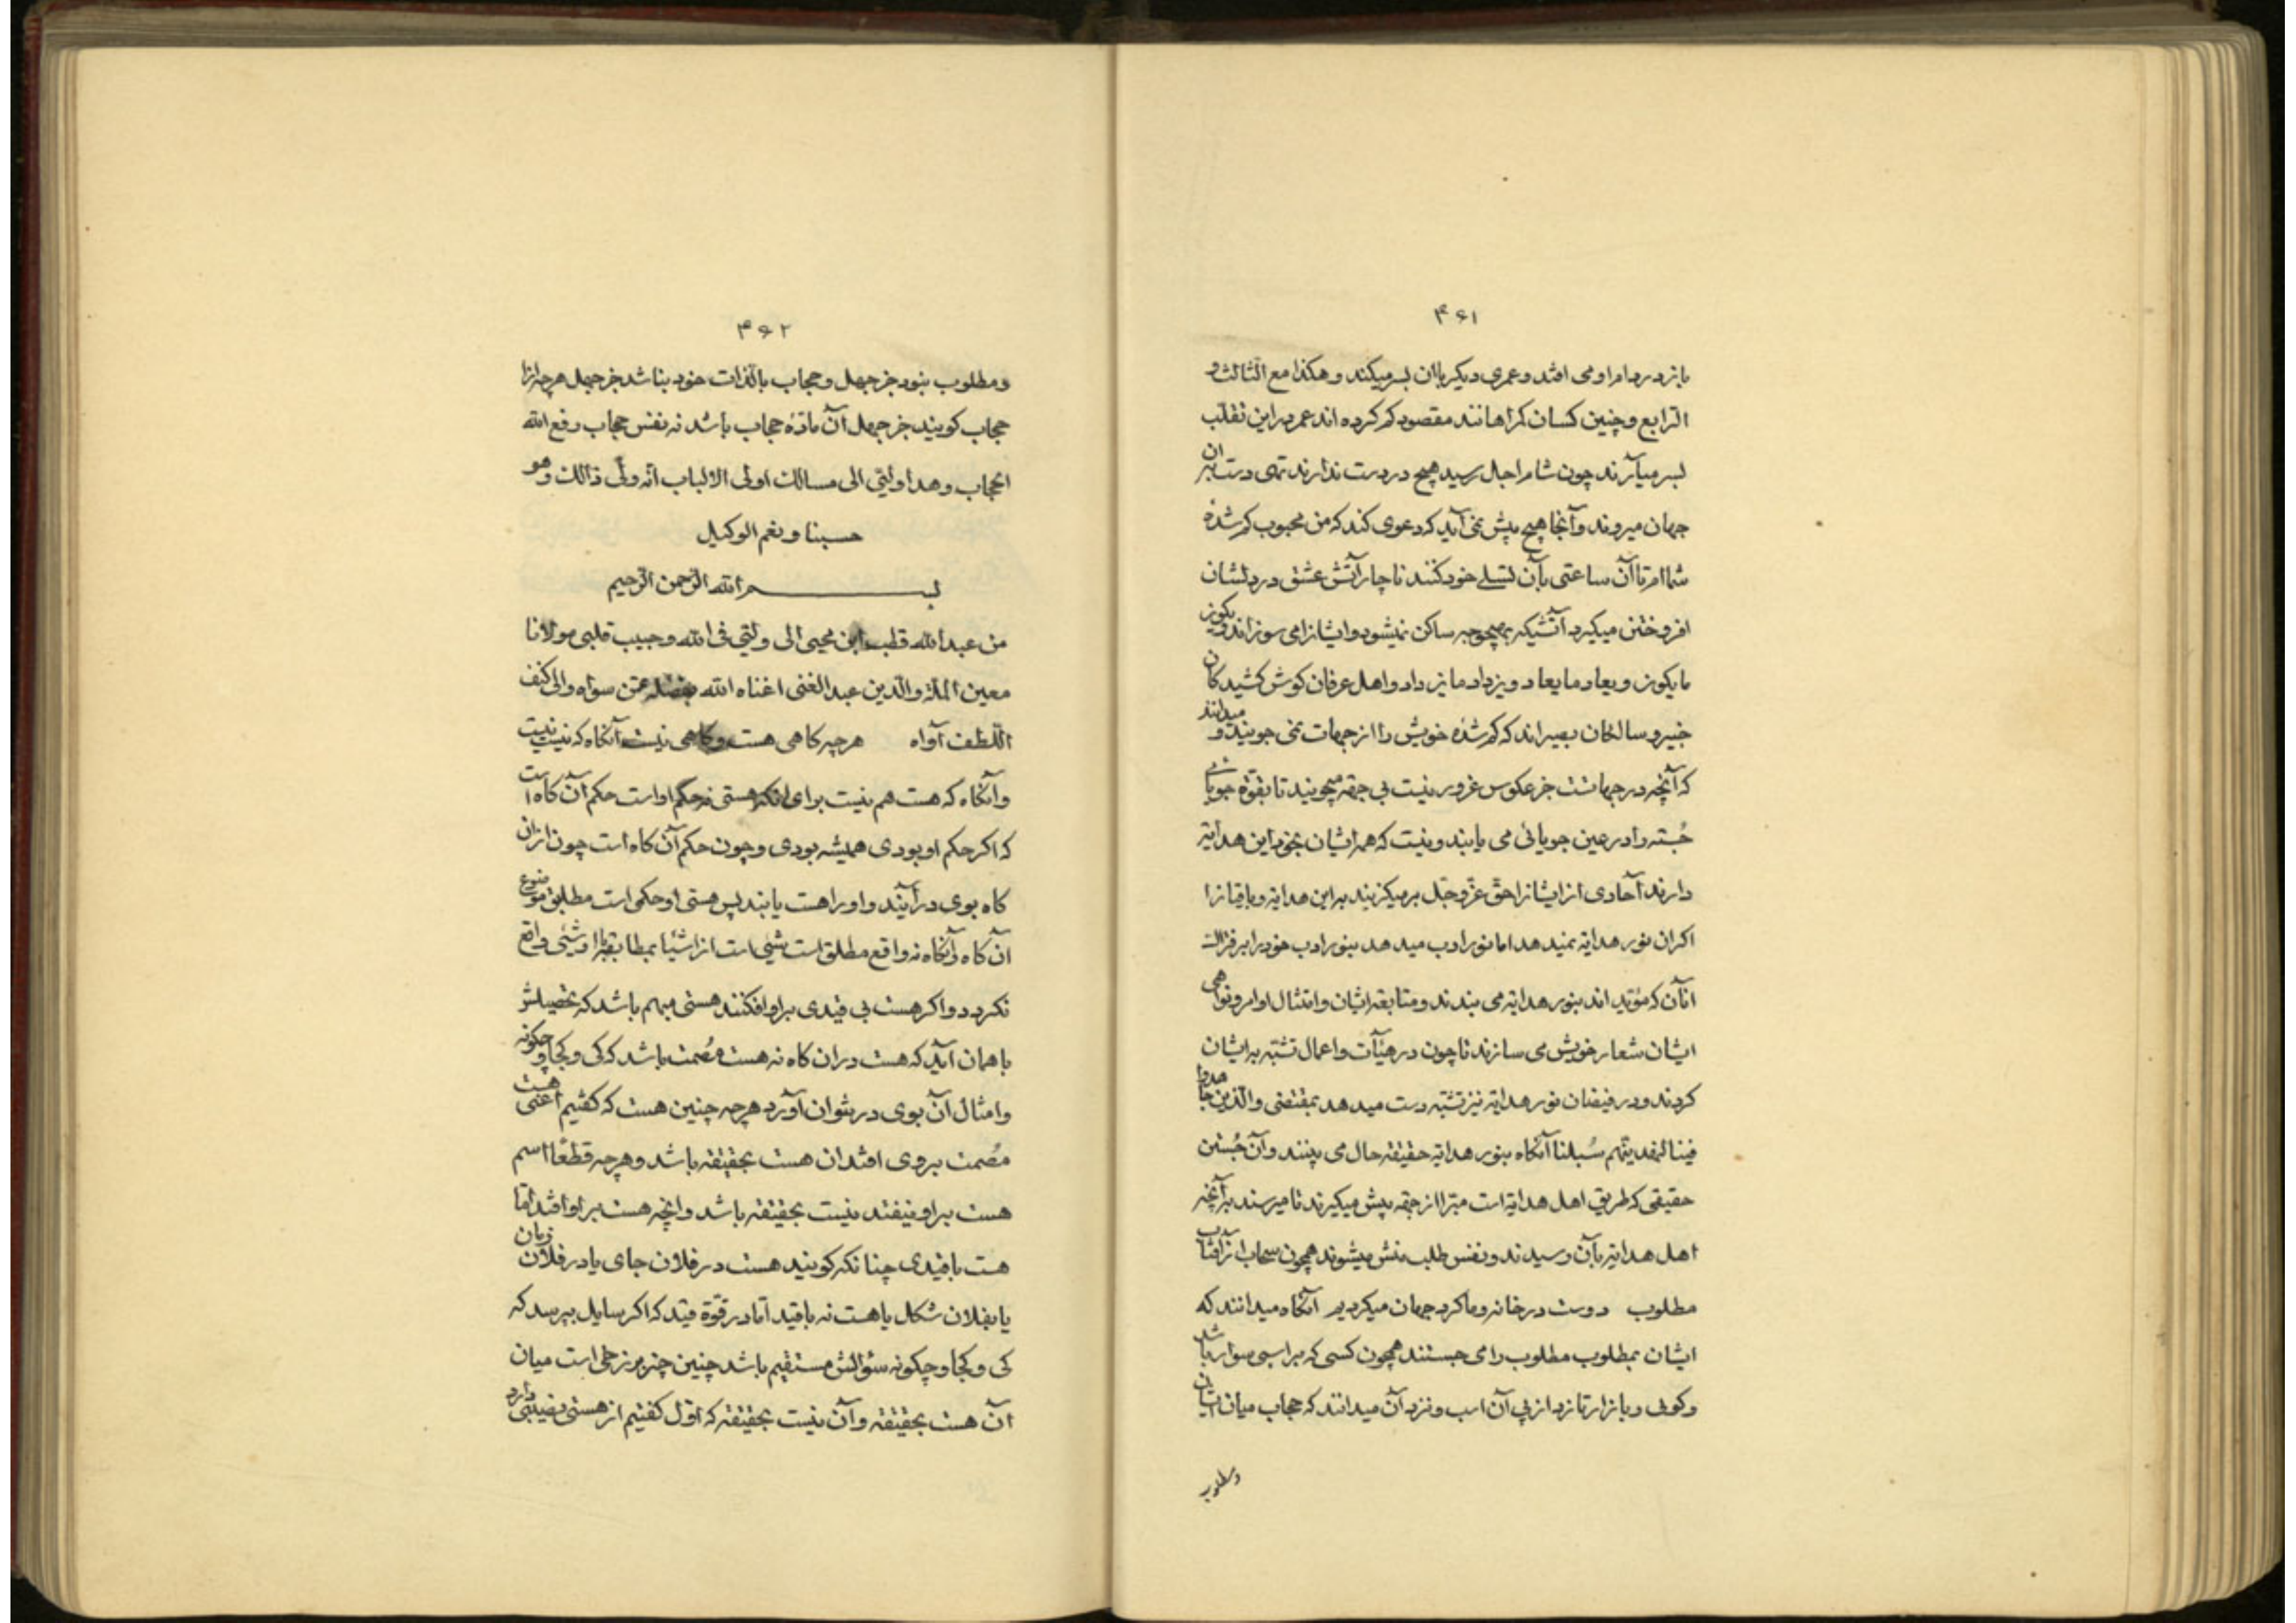 ۴۶۱
باز در دام او می افتد و عمری دیکر باان بسر میکند و هکذا مع الثالث و
الرابع و چنین کسان کمراهانند مقصود کم کرده اند عمر در این تقلب
بسر میآرند چون شام اجل رسید هیچ در دست ندارند تهی دست ازان
جهان میروند و آنجا هیچ پیش نمی آید که دعوی کند که من محبوب کم شده
شماام تا آن ساعتی بآن تسلی خود کنند ناچار آتش عشق در دلشان
افروختن میکیرد آتشیکه بهیچوجه ساکن نمیشود و ایشانرا می سوزاند و یکون
ما یکون و یعاد ما یعاد و یزداد ما یزداد و اهل عرفان کوش کشید کان
خبیر و سالکان بصیراند که کم شده خویش را از جهات نمی جویند و میدانند
که آنچه در جهاتست جز عکوس غرور نیست بی جهة میجویند تا بقوة جویائی
جُسته را در عین جویائی می یابند و نیست که همه ایشان بخود این هدایة
دارند آحادی از ایشانرا حق عزّ و جّل بر میکزیند بر این هدایة و باقیانرا
اکر ان نور هدایة نمیدهد اما نور ادب میدهد بنور ادب خود را بر فتراک
انآن که مؤید اند بنور هدایة می بندند و متابعة ایشان و امتثال اوامر و نواهی
ایشان شعار خویش می سازند تا چون در هیئآت و اعمال تشبّه بر ایشان
کردند و در فیضان نور هدایة نیز تشبّه دست میدهد بمقتضی والّذین جاهدوا
فینا لنهدینّهم سُبلنا آنکاه بنور هدایة حقیقة حال می بینند و آن جُستن
حقیقی که طریق اهل هدایة است مبرّا از جهة پیش میکیرند تا میرسند بر آنچه
اهل هدایة بآن رسیدند و نفس طلب منش میشوند همچون سحاب از آفتاب
مطلوب دوست در خانه و ما کرد جهان میکردیم آنکاه میدانند که
ایشان بمطلوب مطلوب را می جستند همچون کسی که بر اسبی سوار باشد
و کوئی و بازار تازد از پی آن اسب و نزد آن میدانند که حجاب میان ایشان
ومطلوب
۴۶۲
و مطلوب نبود جز جهل و حجاب بالّذات خود نباشد جز جهل هرچه ازا
حجاب کویند جز جهل آن مادّه حجاب باشد نه نفس حجاب رفع الله
الحجاب و هدا ولّتی الی مسالک اولی الالباب انّه ولّی ذالک و هو
حسبنا و نعم الوکیل
بسم الله الرّحمن الرّحیم
من عبدالله قطب ابن محیی الی ولّتی فی الله و حبیب قلبی مولانا
معین الملة و الّدین عبدالغنی اغناه الله بفضله عمّن سواه و الی کنف
اللّطف آواه هرچه کاهی هست و کاهی نیست آنکاه که نیست نیست
و آنکاه که هست هم نیست برای انکه هستی نه حکم اوست حکم آن کاه است
که اکر حکم او بودی همیشه بودی و چون حکم آن کاه است چون ازان
کاه بوی در آیند و او را هست یابند پس هستی او حکمی است مطلق موضوع
آن کاه و آنکاه نه واقع مطلق است شیی است از اشیا بمطابقة با او شئی واقع
نکردد و اکر هست بی قیدی بر او افکنند هستی مبهم باشد که تحصیلش
با همان آید که هست در ان کاه نه هست مُصمت باشد که کی و کجا و چکونه
و امثال آن بوی در نتوان آورد هرچه چنین هست که کفتیم اعنی هست
مصمت بروی افتد ان هست بحقیقة باشد و هرچه قطعًا اسم
هست بر او نیفتد نیست بحقیقة باشد و انچه هست بر او افتد امّا
هست با قیدی چنانکه کویند هست در فلان جای یا در فلان زمان
یا بفلان شکل یا هست نه با قید امّا در قوّة قید که اکر سایل بپرسد که
کی و کجا و چکونه سؤالش مستقیم باشد چنین چیز برزخی است میان
آن هست بحقیقة و آن نیست بحقیقة که اوّل کفتیم از هستی نصیبی دارد